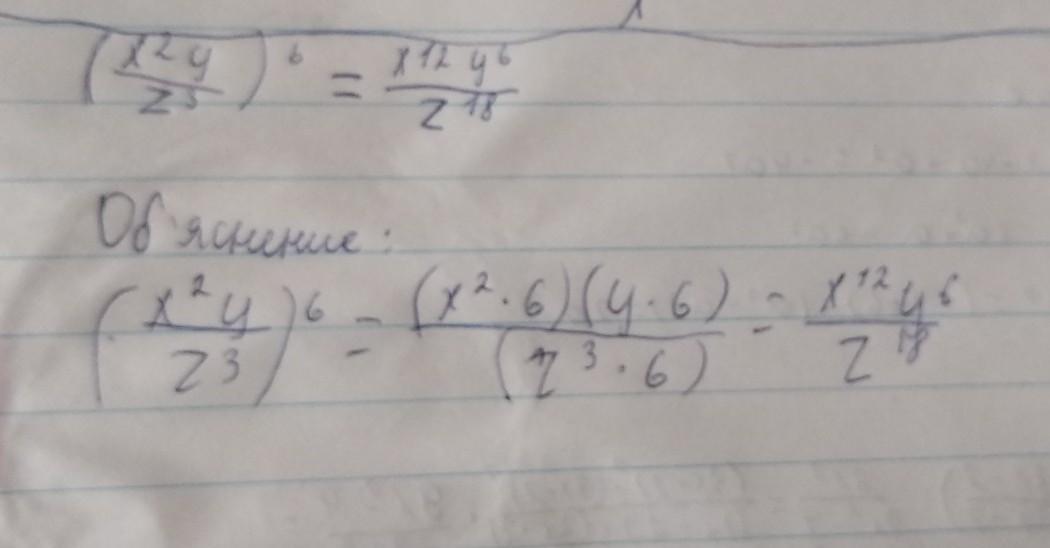 (x²y / z³)⁶ = x¹²y⁶ / z¹⁸
Объяснение:
(x²y / z³)⁶ = (x²·6)(y·6) / (z³·6) = x¹²y⁶ / z¹⁸